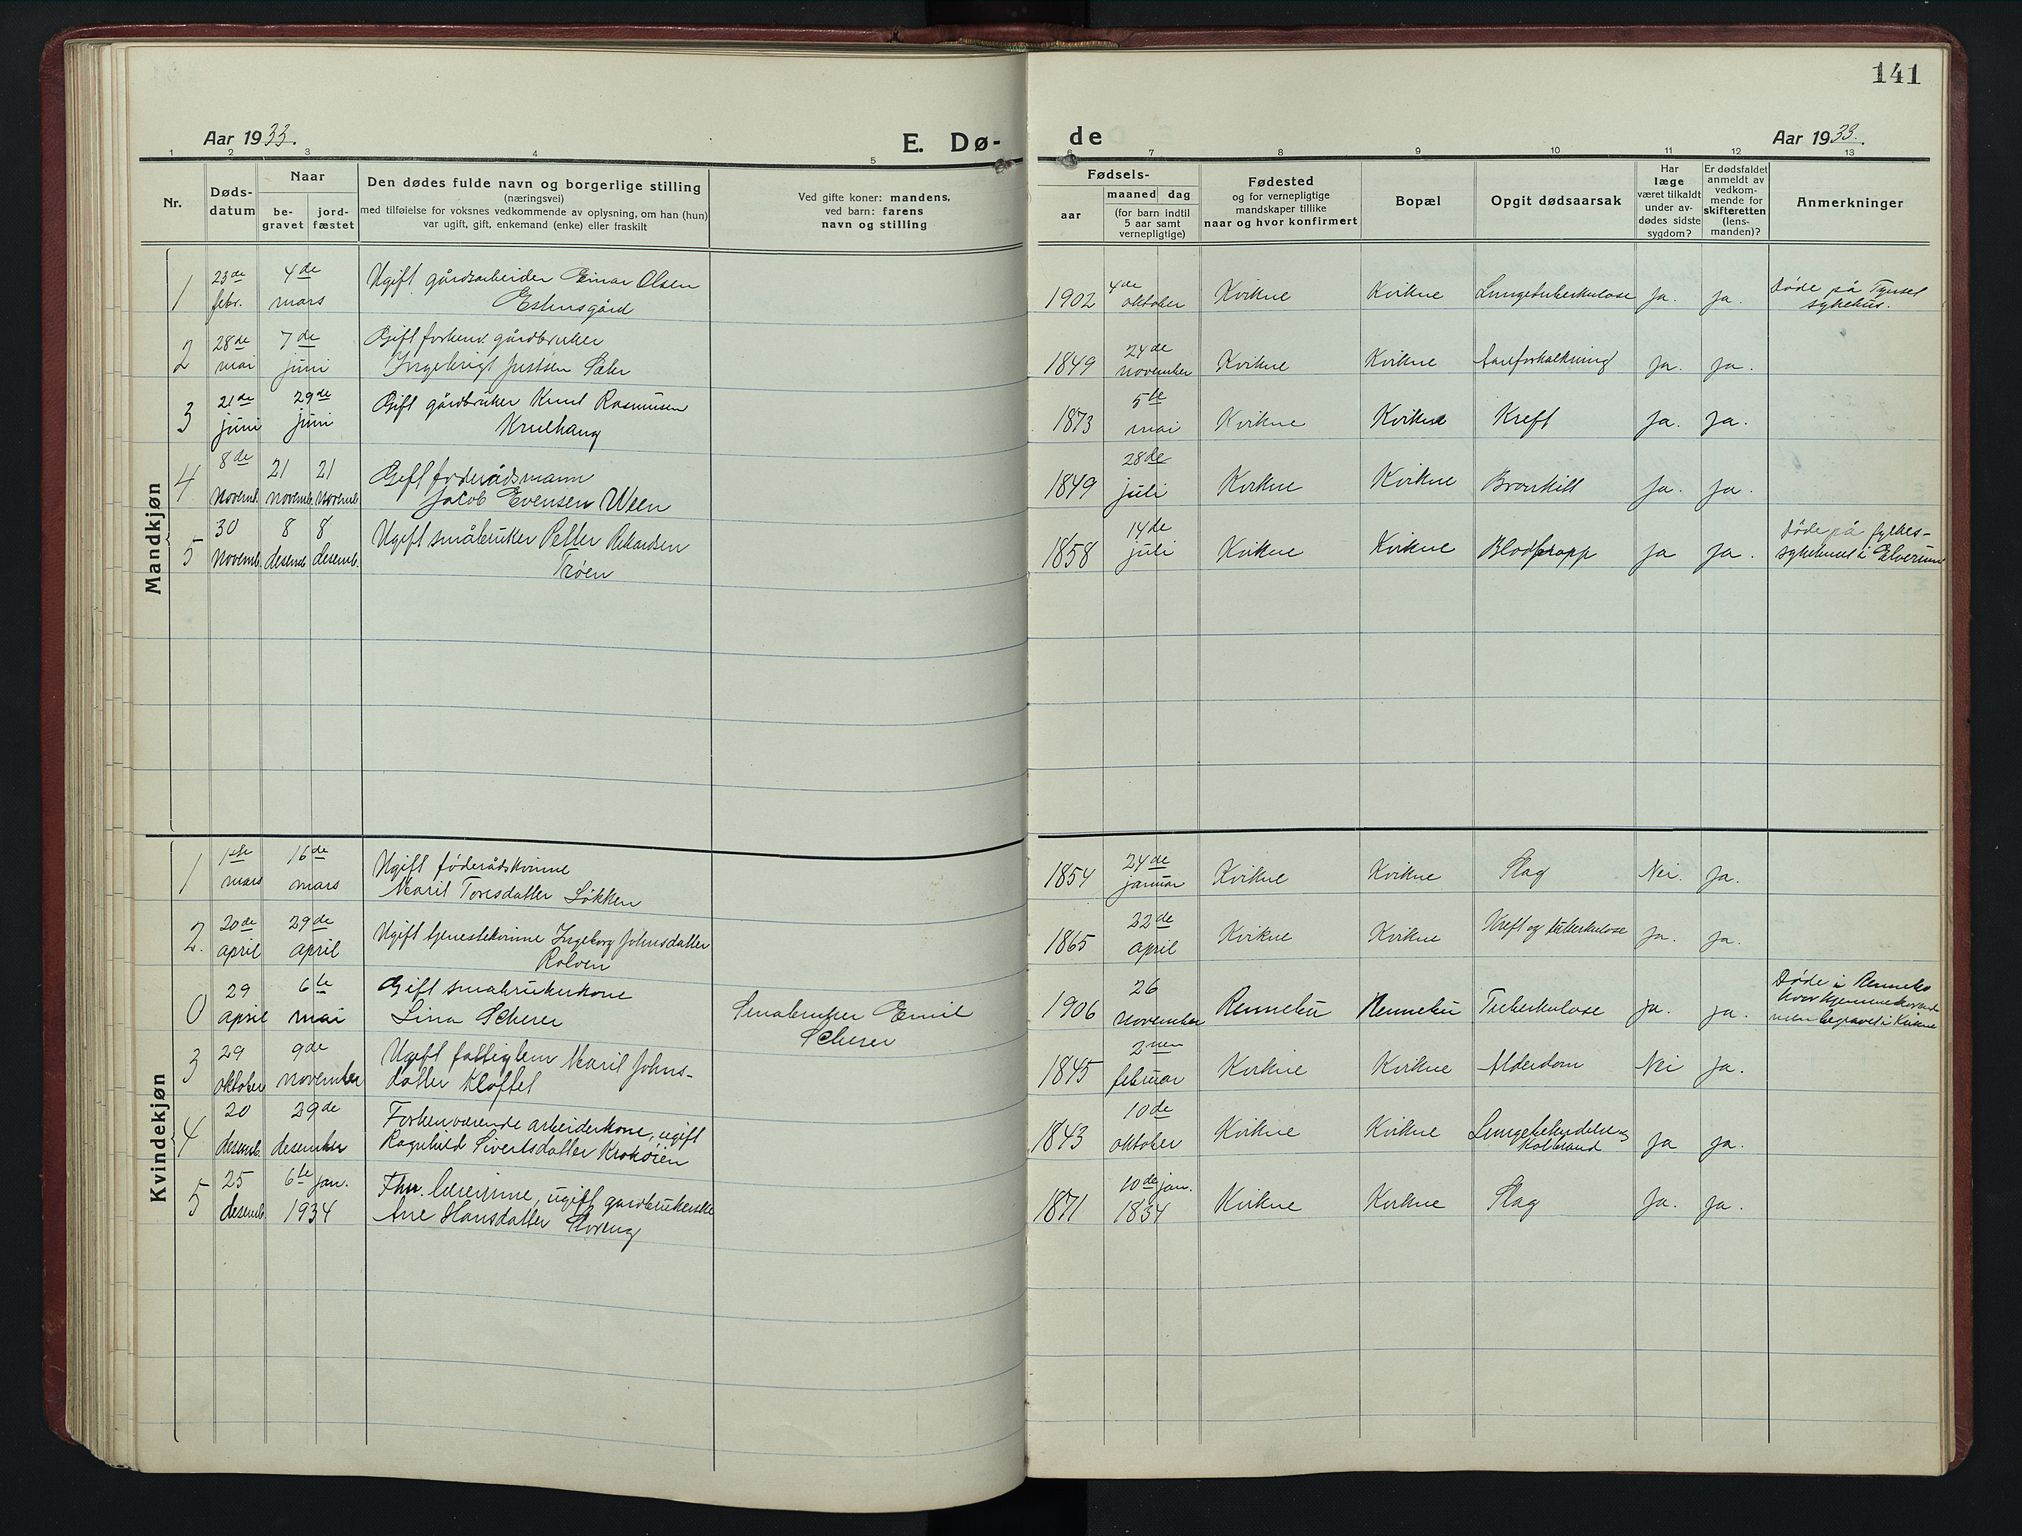 141
Aar 1933.
E. Dø-
de
Aar 1933.
1 2 3 4 5 6 7 8 9 10 11 12 13
Nr.
Døds-
datum
Naar
be-
gravet
jord-
fæstet
Den dødes fulde navn og borgerlige stilling
(næringsvei)
med tilføielse for voksnes vedkommende av oplysning, om han (hun)
var ugift, gift, enkemand (enke) eller fraskilt
Ved gifte koner: mandens,
ved barn: farens
navn og stilling
Fødsels-
aar
maaned dag
(for barn indtil
5 aar samt
vernepligtige)
Fødested
og for vernepligtige
mandskaper tillike
naar og hvor konfirmert
Bopæl
Opgit dødsaarsak
Har
læge
været tilkaldt
under av-
dødes sidste
sygdom?
Er dødsfaldet
anmeldt av
vedkom-
mende for
skifteretten
(lens-
manden)?
Anmerkninger
Mandkjøn
1 23de febr. 4de mars Ugift gårdsarbeider Einar Olsen
Estensgård
1902 4de oktober Kvikne Kvikne Lungetuberkulose Ja. Ja. Døde på Tynset
sykehus.
2 28de mai 7de juni Gift forhenv. gårdbruker
Ingebrigt Justsen Sæter
1849 24de november Kvikne Kvikne Aareforkalkning Ja. Ja.
3 21de juni 29de juni Gift gårdbruker Knut Rasmusen
Krulhaug
1873 5de mai Kvikne Kvikne Kreft Ja. Ja.
4 8de Novemb. 21 novemb. 21 Novemb. Gift føderådsmann
Jacob Evensen Uteen
1849 28de juli Kvikne Kvikne Bronkitt Ja. Ja.
5 30 Novemb. 8 desemb. 8 desemb. Ugift småbruker Petter Rikardsen
Trøen
1858 14de juli Kvikne Kvikne Blodpropp Ja Ja. Døde på fylkes-
sykehuset i Elverum
Kvindekjøn
1 1ste mars 16de mars Ugift føderådskvinne
Marit Toresdatter Løkken
1854 24de januar Kvikne Kvikne Slag Nei. Ja.
2. 20de april 29de april Ugift tjenestekvinne Ingeborg Johnsdatter
Rolven
1865 22de april Kvikne Kvikne Kreft og tuberkulose Ja. Ja.
0 29 april 6te mai Gift småbrukerkone
Lina Scherer
Småbruker Emil
Scherer
1906 26 November Rennebu Rennebu Tuberkulose Ja. Ja. Døde i Rennebu
hvor hjemmehørende
men begravet i Kvikne
3 29 oktober 9de november Ugift fattiglem Marit Johns-
datter Kløftet
1845 2nen februar Kvikne Kvikne Alderdom Nei Ja.
4 20 desemb. 29de desember Forhenværende arbeiderkone, ugift
Ragnhild Sivertsdatter Krokøien
1843 10de oktober Kvikne Kvikne Lungebetendelse og
Kolbrand Ja Ja.
5 25 desemb. 6te jan. 1934 Fhv. lærerinne, ugift gardbrukerske
Ane Hansdatter Storeng
1871 10de jan. 1834 Kvikne Kvikne Slag Ja. Ja.